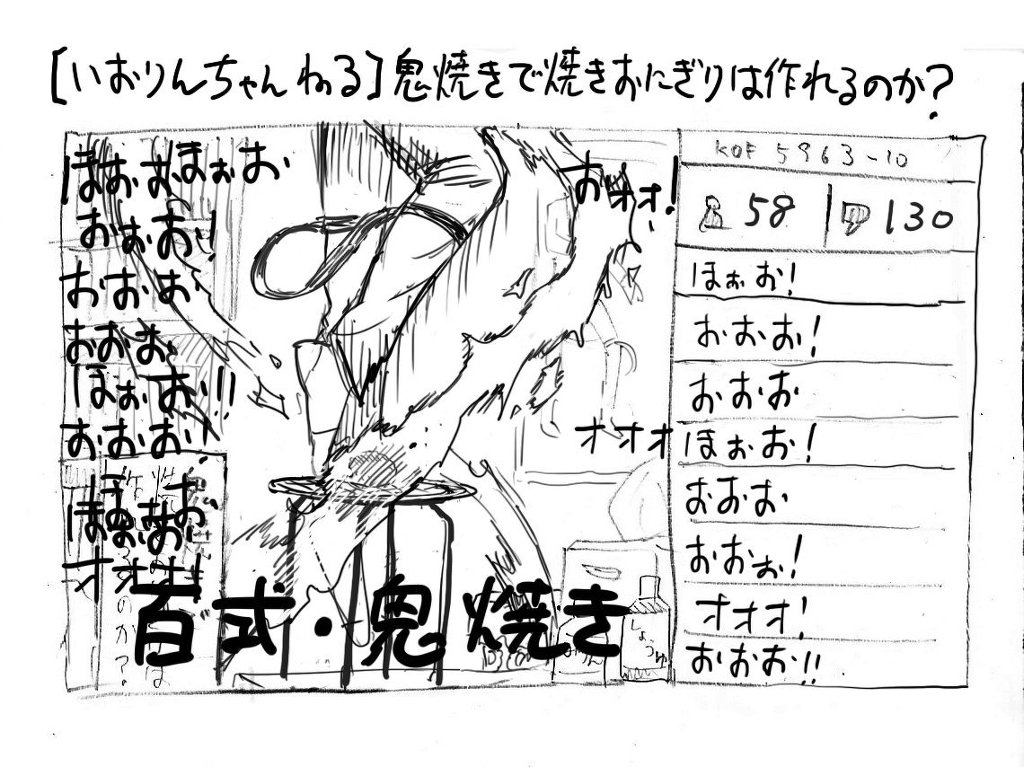 [いおりんちゃんねる]鬼焼きで焼きおにぎりは作れるのか?
ほおおほぉお
おぉお!
おおお
おおお
ほぉお!!
おおお!
オオオ!
おオオ!
オオオ
百式・鬼焼き
しょうゆ
のか?
KOF 5963-10
58
130
ほぉお!
おおお!
おおお
ほぉお!
おおお
おおぉ!
オオオ!
おおお!!